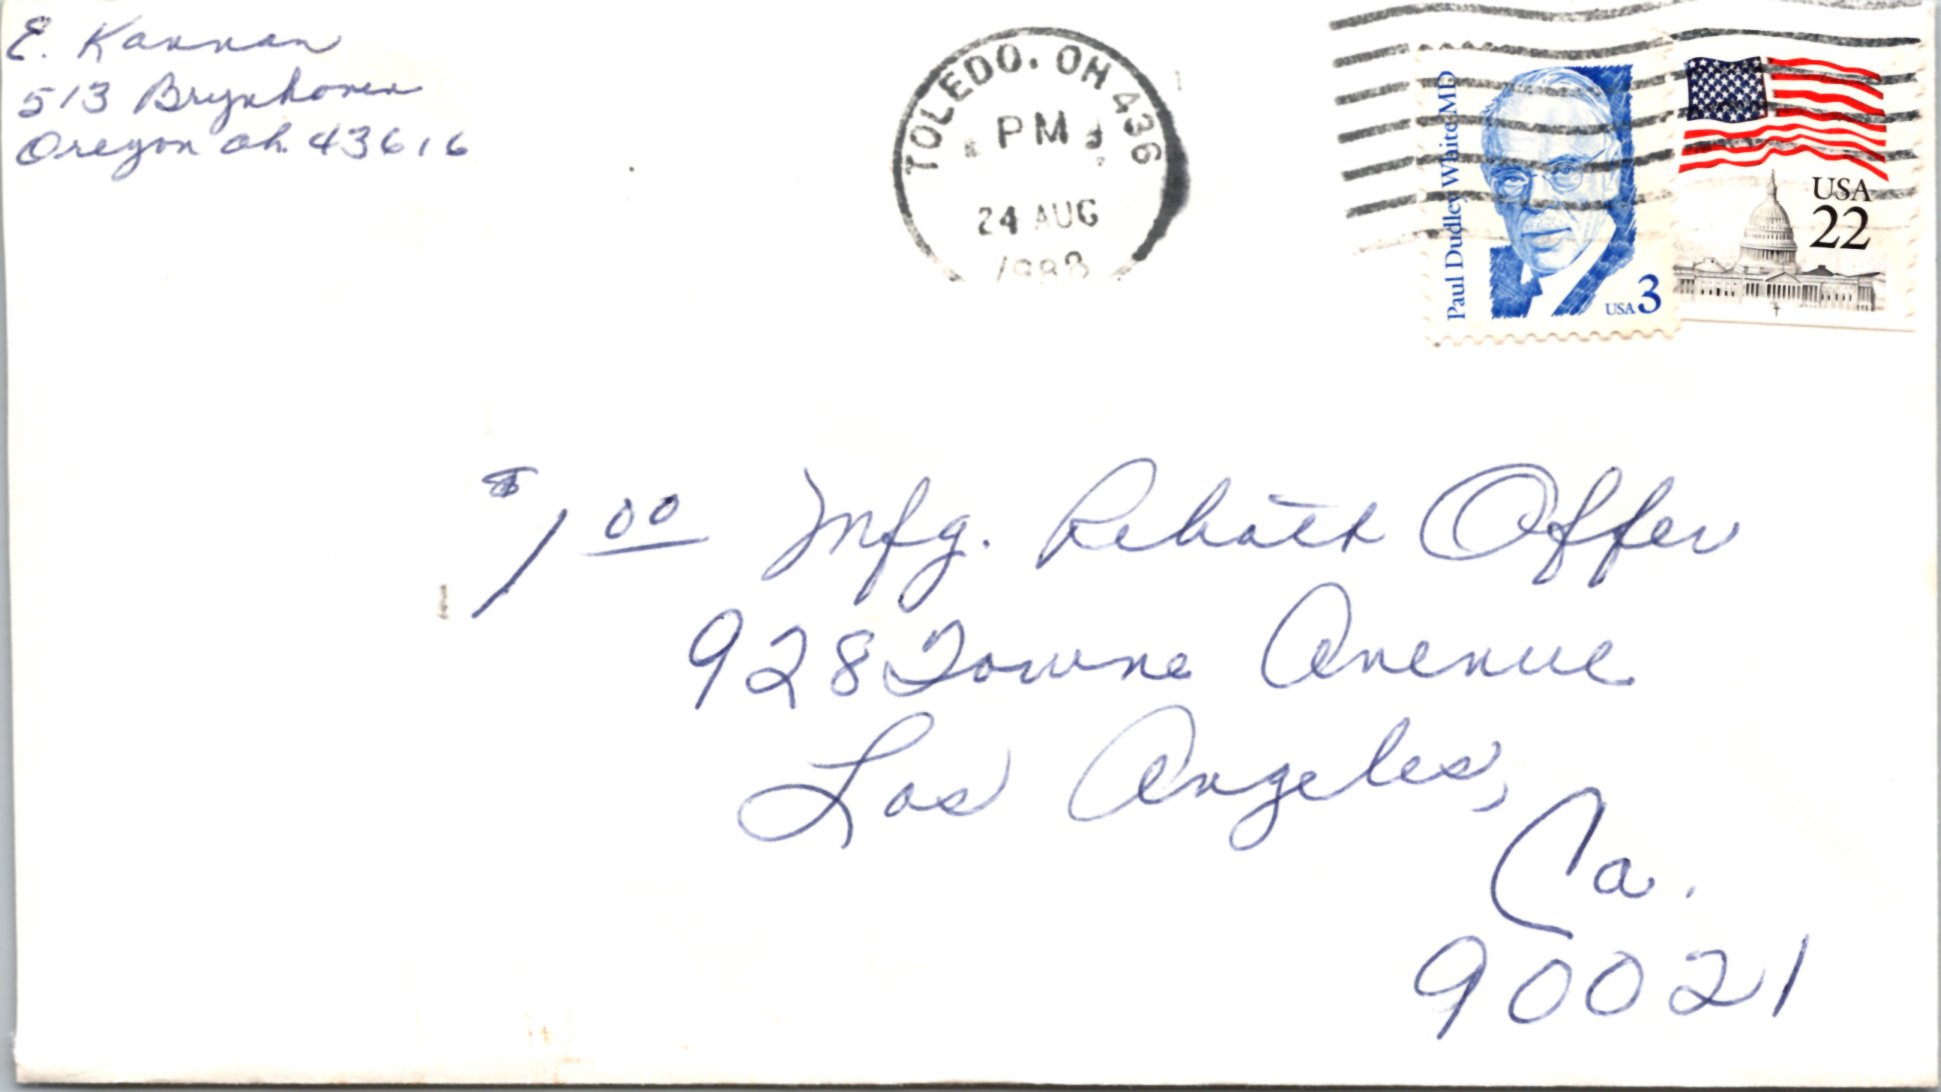 E. Kannan
513 Brynhaven
Oregon Oh. 43616
TOLEDO, OH 436
PM
24 AUG
1988
Paul Dudley White MD
USA 3
USA
22
$1 00 Mfg. Rebate Offer
928 Towne Avenue
Los Angeles,
Ca.
90021